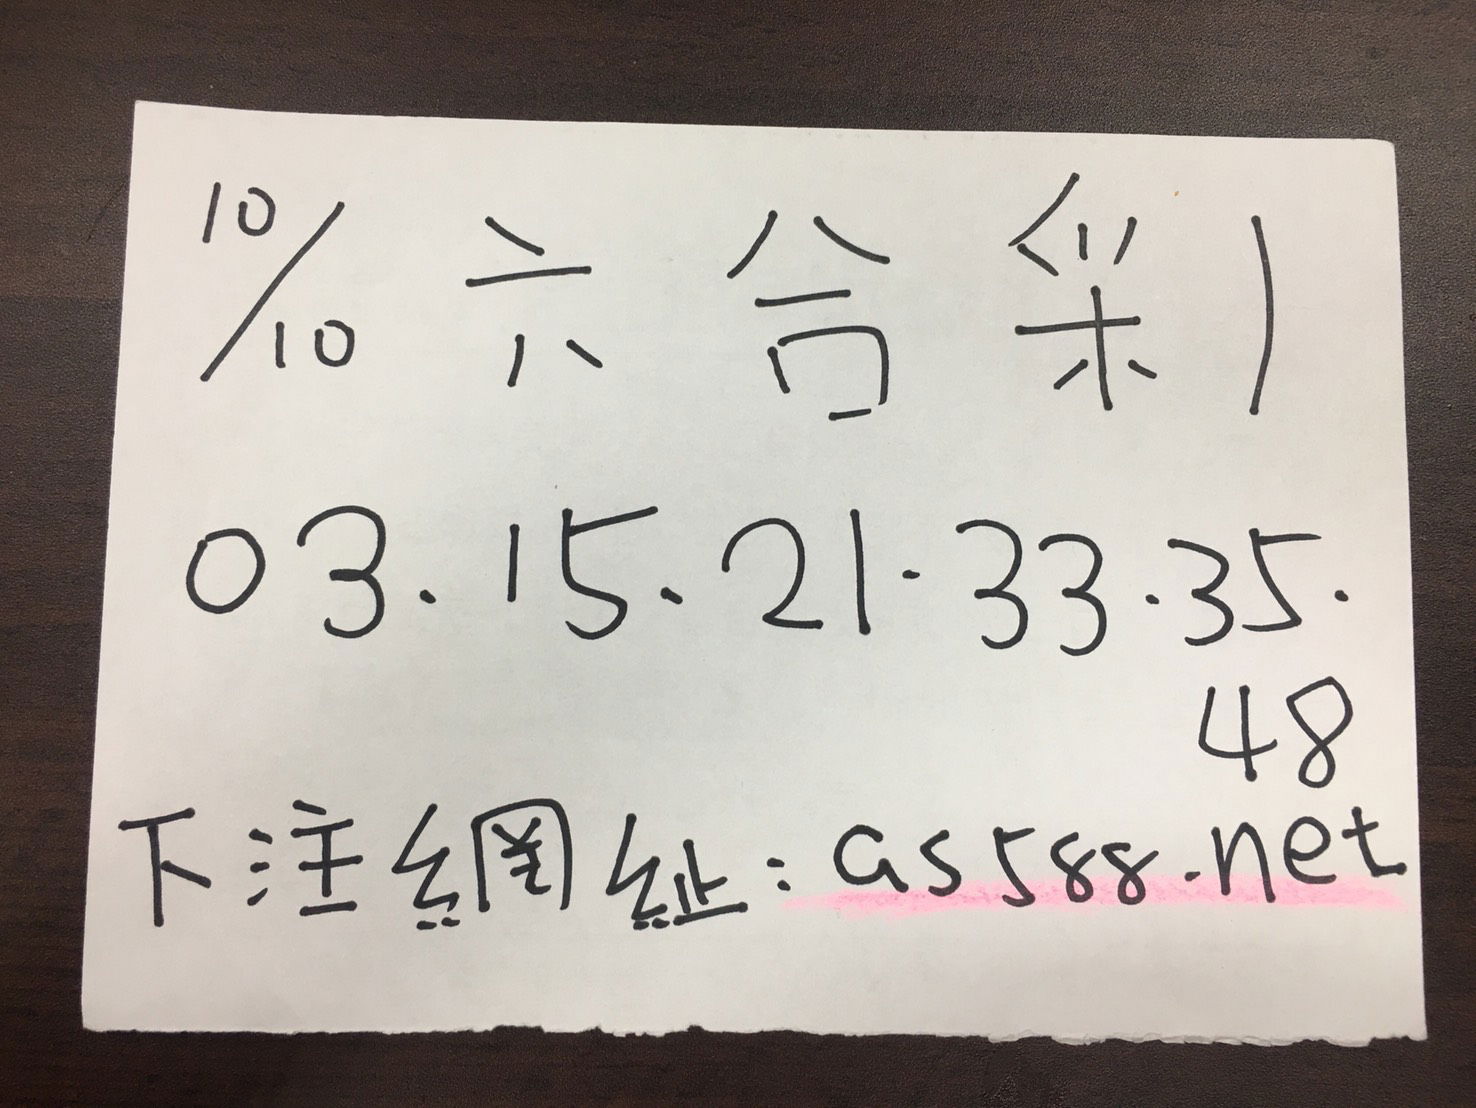 10/10 六合彩
03.15.21.33.35.
48
下注網址:as588.net